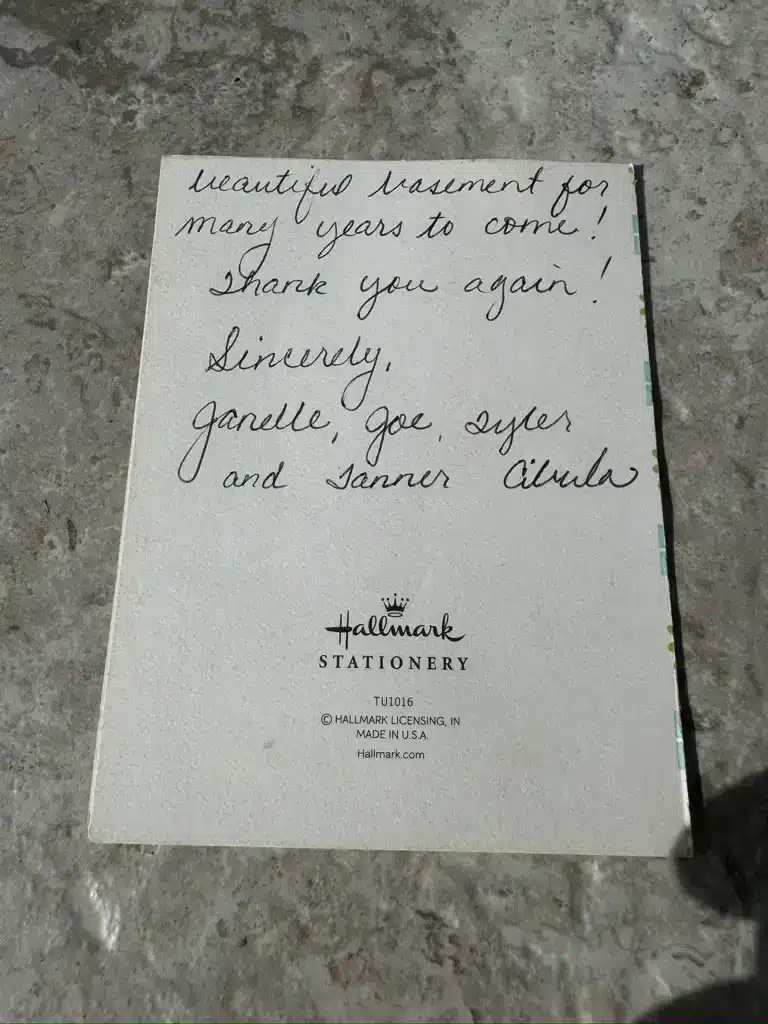 beautiful basement for
many years to come!
Thank you again!
Sincerely,
Janelle, Joe, Tyler
and Tanner Cibula
Hallmark
STATIONERY
TU1016
© HALLMARK LICENSING, IN
MADE IN U.S.A.
Hallmark.com